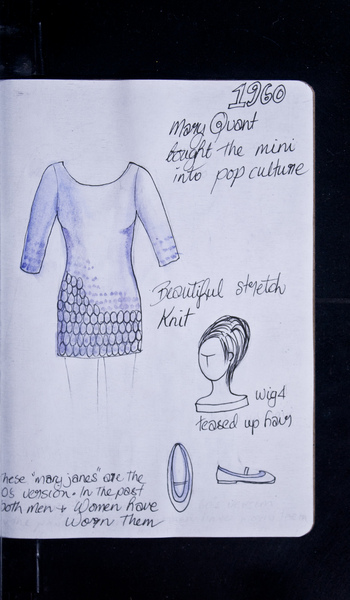 1960
Mary Quant
bought the mini
into pop culture
Beautiful stretch
Knit
wigs
teased up hair
hese "mary janes" are the
0s version. In the past
both men + Women have
Worn Them